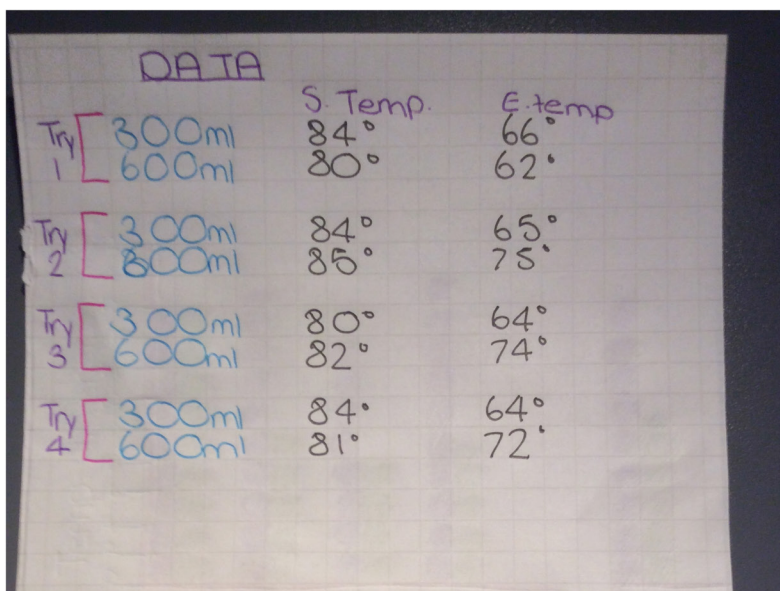 DATA
S. Temp. E.temp
Try 1 300ml 84° 66°
600ml 80° 62°
Try 2 300ml 84° 65°
600ml 85° 75°
Try 3 300ml 80° 64°
600ml 82° 74°
Try 4 300ml 84° 64°
600ml 81° 72°